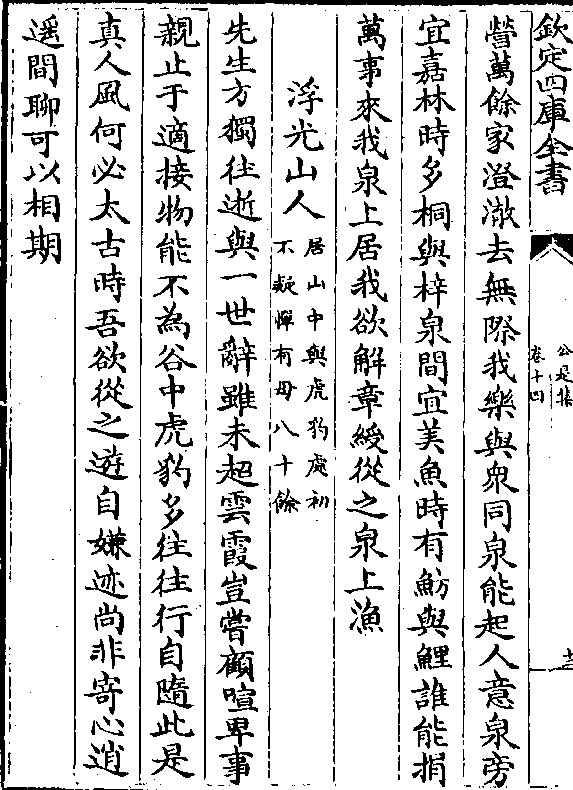 欽定四庫全書
公是集
卷十四
營萬餘家澄澈去無際我樂與衆同泉能起人意泉旁
宜嘉林時多桐與梓泉間宜美魚時有魴與鯉誰能捐
萬事來我泉上居我欲解章綬從之泉上漁
浮光山人
居山中與虎豹處初
不疑憚有母八十餘
先生方獨往逝與一世辭雖未超雲霞豈嘗顧喧卑事
親止于適接物能不為谷中虎豹多往往行自隨此是
真人風何必太古時吾欲從之遊自嫌迹尚非寄心逍
遥間聊可以相期